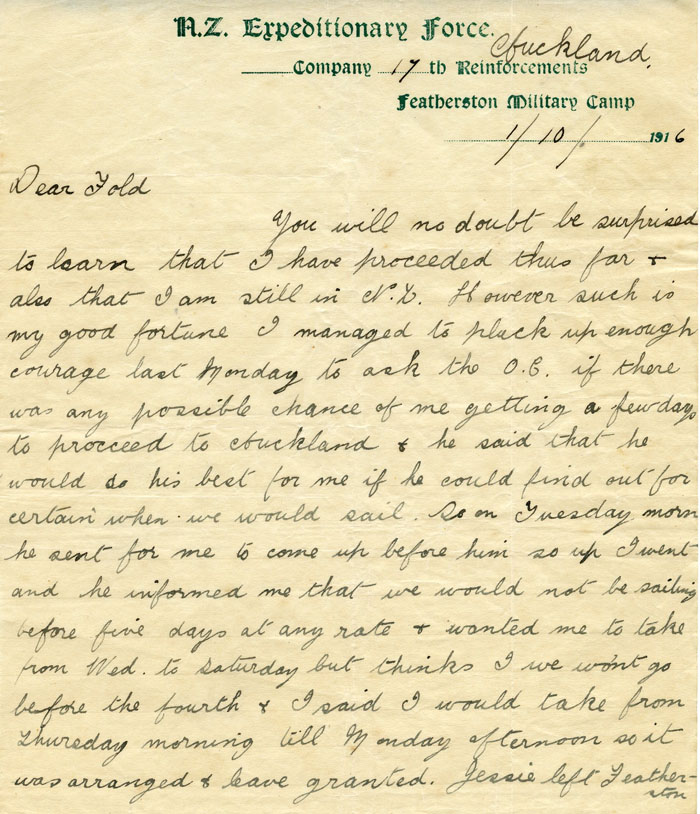 N.Z. Expeditionary Force.
Auckland.
Company 17 th Reinforcements
Featherston Military Camp
1/10/ 1916
Dear
You will no doubt be surprised
to learn that I have proceeded thus far &
also that I am still in N.Z. However such is
my good fortune I managed to pluck up enough
courage last Monday to ask the O.C. if there
was any possible chance of me getting a few days
to proceed to Auckland & he said that he
would do his best for me if he could find out for
certain when we would sail. So on Tuesday morn
he sent for me to come up before him so up I went
and he informed me that we would not be sailing
before five days at any rate & wanted me to take
from Wed. to Saturday but thinks I we won't go
before the fourth & I said I would take from
Thursday morning till Monday afternoon so it
was arranged & leave granted. Jessie left Feather-
ston